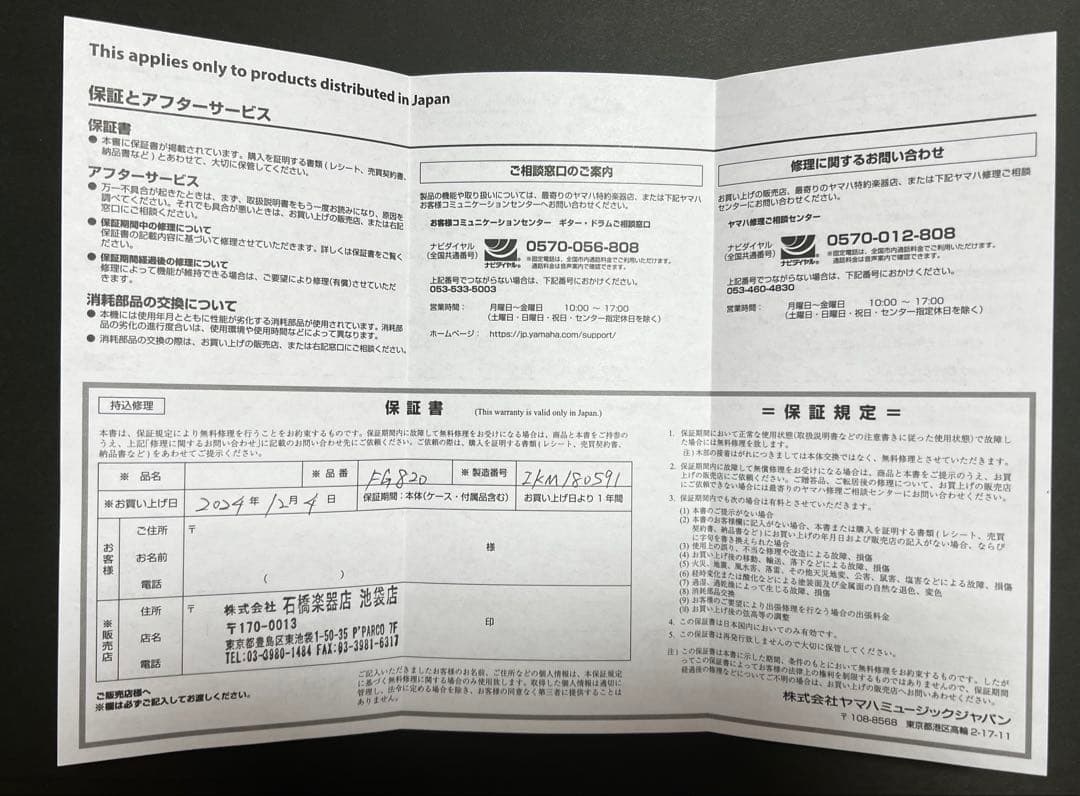 This applies only to products distributed in Japan
保証とアフターサービス
保証書
● 本書に保証書が掲載されています。購入を証明する書類(レシート、売買契約書、
納品書など)とあわせて、大切に保管してください。
アフターサービス
● 万一不具合が起きたときは、まず、取扱説明書をもう一度お読みになり、原因を
調べてください。それでも具合が悪いときは、お買い上げの販売店、または右記
窓口にご相談ください。
● 保証期間中の修理について
保証書の記載内容に基づいて修理させていただきます。詳しくは保証書をご覧く
ださい。
● 保証期間経過後の修理について
修理によって機能が維持できる場合は、ご要望により修理(有償)させていただ
きます。
消耗部品の交換について
● 本機には使用年月とともに性能が劣化する消耗部品が使用されています。消耗部
品の劣化の進行度合いは、使用環境や使用時間などによって異なります。
● 消耗部品の交換の際は、お買い上げの販売店、または右記窓口にご相談ください。
ご相談窓口のご案内
製品の機能や取り扱いについては、最寄りのヤマハ特約楽器店、または下記ヤマハ
お客様コミュニケーションセンターへお問い合わせください。
お客様コミュニケーションセンター ギター・ドラムご相談窓口
ナビダイヤル
(全国共通番号)
ナビダイヤル
0570-056-808
※固定電話は、全国市内通話料金でご利用いただけます。
通話料金は音声案内で確認できます。
上記番号でつながらない場合は、下記番号におかけください。
053-533-5003
営業時間： 月曜日～金曜日 10:00 ～ 17:00
(土曜日・日曜日・祝日・センター指定休日を除く)
ホームページ： https://jp.yamaha.com/support/
修理に関するお問い合わせ
お買い上げの販売店、最寄りのヤマハ特約楽器店、または下記ヤマハ修理ご相談
センターにお問い合わせください。
ヤマハ修理ご相談センター
ナビダイヤル
(全国共通番号)
ナビダイヤル
0570-012-808
※固定電話は、全国市内通話料金でご利用いただけます。
通話料金は音声案内で確認できます。
上記番号でつながらない場合は、下記番号におかけください。
053-460-4830
営業時間： 月曜日～金曜日 10:00 ～ 17:00
(土曜日・日曜日・祝日・センター指定休日を除く)
持込修理
保証書
(This warranty is valid only in Japan.)
本書は、保証規定により無料修理を行うことをお約束するものです。保証期間内に故障して無料修理をお受けになる場合は、商品と本書をご持参の
うえ、上記「修理に関するお問い合わせ」に記載のお問い合わせ先にご依頼ください。ご依頼の際は、購入を証明する書類(レシート、売買契約書、
納品書など)をあわせてご提示ください。
※ 品名
※ 品番 FG820
※ 製造番号 IKM180591
※お買い上げ日 2024年 12月 4日
保証期間：本体(ケース・付属品含む) お買い上げ日より1年間
お客様
ご住所 〒
お名前 様
電話 ( )
※販売店
住所 〒
店名 印
電話
株式会社 石橋楽器店 池袋店
〒170-0013
東京都豊島区東池袋1-50-35 P'PARCO 7F
TEL:03-3980-1484 FAX:03-3981-6317
ご販売店様へ
※欄は必ずご記入してお渡しください。
ご記入いただきましたお客様のお名前、ご住所などの個人情報は、本保証規定
に基づく無料修理に関する場合のみ使用致します。取得した個人情報は適切に
管理し、法令に定める場合を除き、お客様の同意なく第三者に提供することは
ありません。
＝保証規定＝
1. 保証期間において正常な使用状態(取扱説明書などの注意書きに従った使用状態)で故障し
た場合には無料修理を致します。
注)木部の接着はがれにつきましては本体交換ではなく、無料修理とさせていただきます。
2. 保証期間内に故障して無償修理をお受けになる場合は、商品と本書をご提示のうえ、お買
上げの販売店にご依頼ください。ご贈答品、ご転居後の修理について、お買上げの販売店
にご依頼できない場合には最寄りのヤマハ修理ご相談センターにお問い合わせください。
3. 保証期間内でも次の場合は有料とさせていただきます。
(1) 本書のご提示がない場合
(2) 本書のお客様欄に記入がない場合、本書または購入を証明する書類(レシート、売買
契約書、納品書など)にお買い上げの年月日および販売店の記入がない場合、ならび
に字句を書き換えられた場合
(3) 使用上の誤り、不当な修理や改造による故障、損傷
(4) お買い上げ後の移動、輸送、落下などによる故障、損傷
(5) 火災、地震、風水害、落雷、その他天災地変、公害、鼠害、塩害などによる故障、損傷
(6) 経時変化または酸化などによる塗装面及び金属面の自然な退色、変色
(7) 過湿、過乾燥によって生じる故障、損傷
(8) 消耗部品交換
(9) お客様のご要望により出張修理を行なう場合の出張料金
(10) お買い上げ後の弦高等の調整
4. この保証書は日本国内においてのみ有効です。
5. この保証書は再発行致しませんので大切に保管してください。
注）この保証書は本書に示した期間、条件のもとにおいて無料修理をお約束するものです。したが
ってこの保証書によってお客様の法律上の権利を制限するものではありませんので、保証期間
経過後の修理などについてご不明の場合は、お買い上げの販売店へお問いあわせください。
株式会社ヤマハミュージックジャパン
〒108-8568 東京都港区高輪 2-17-11